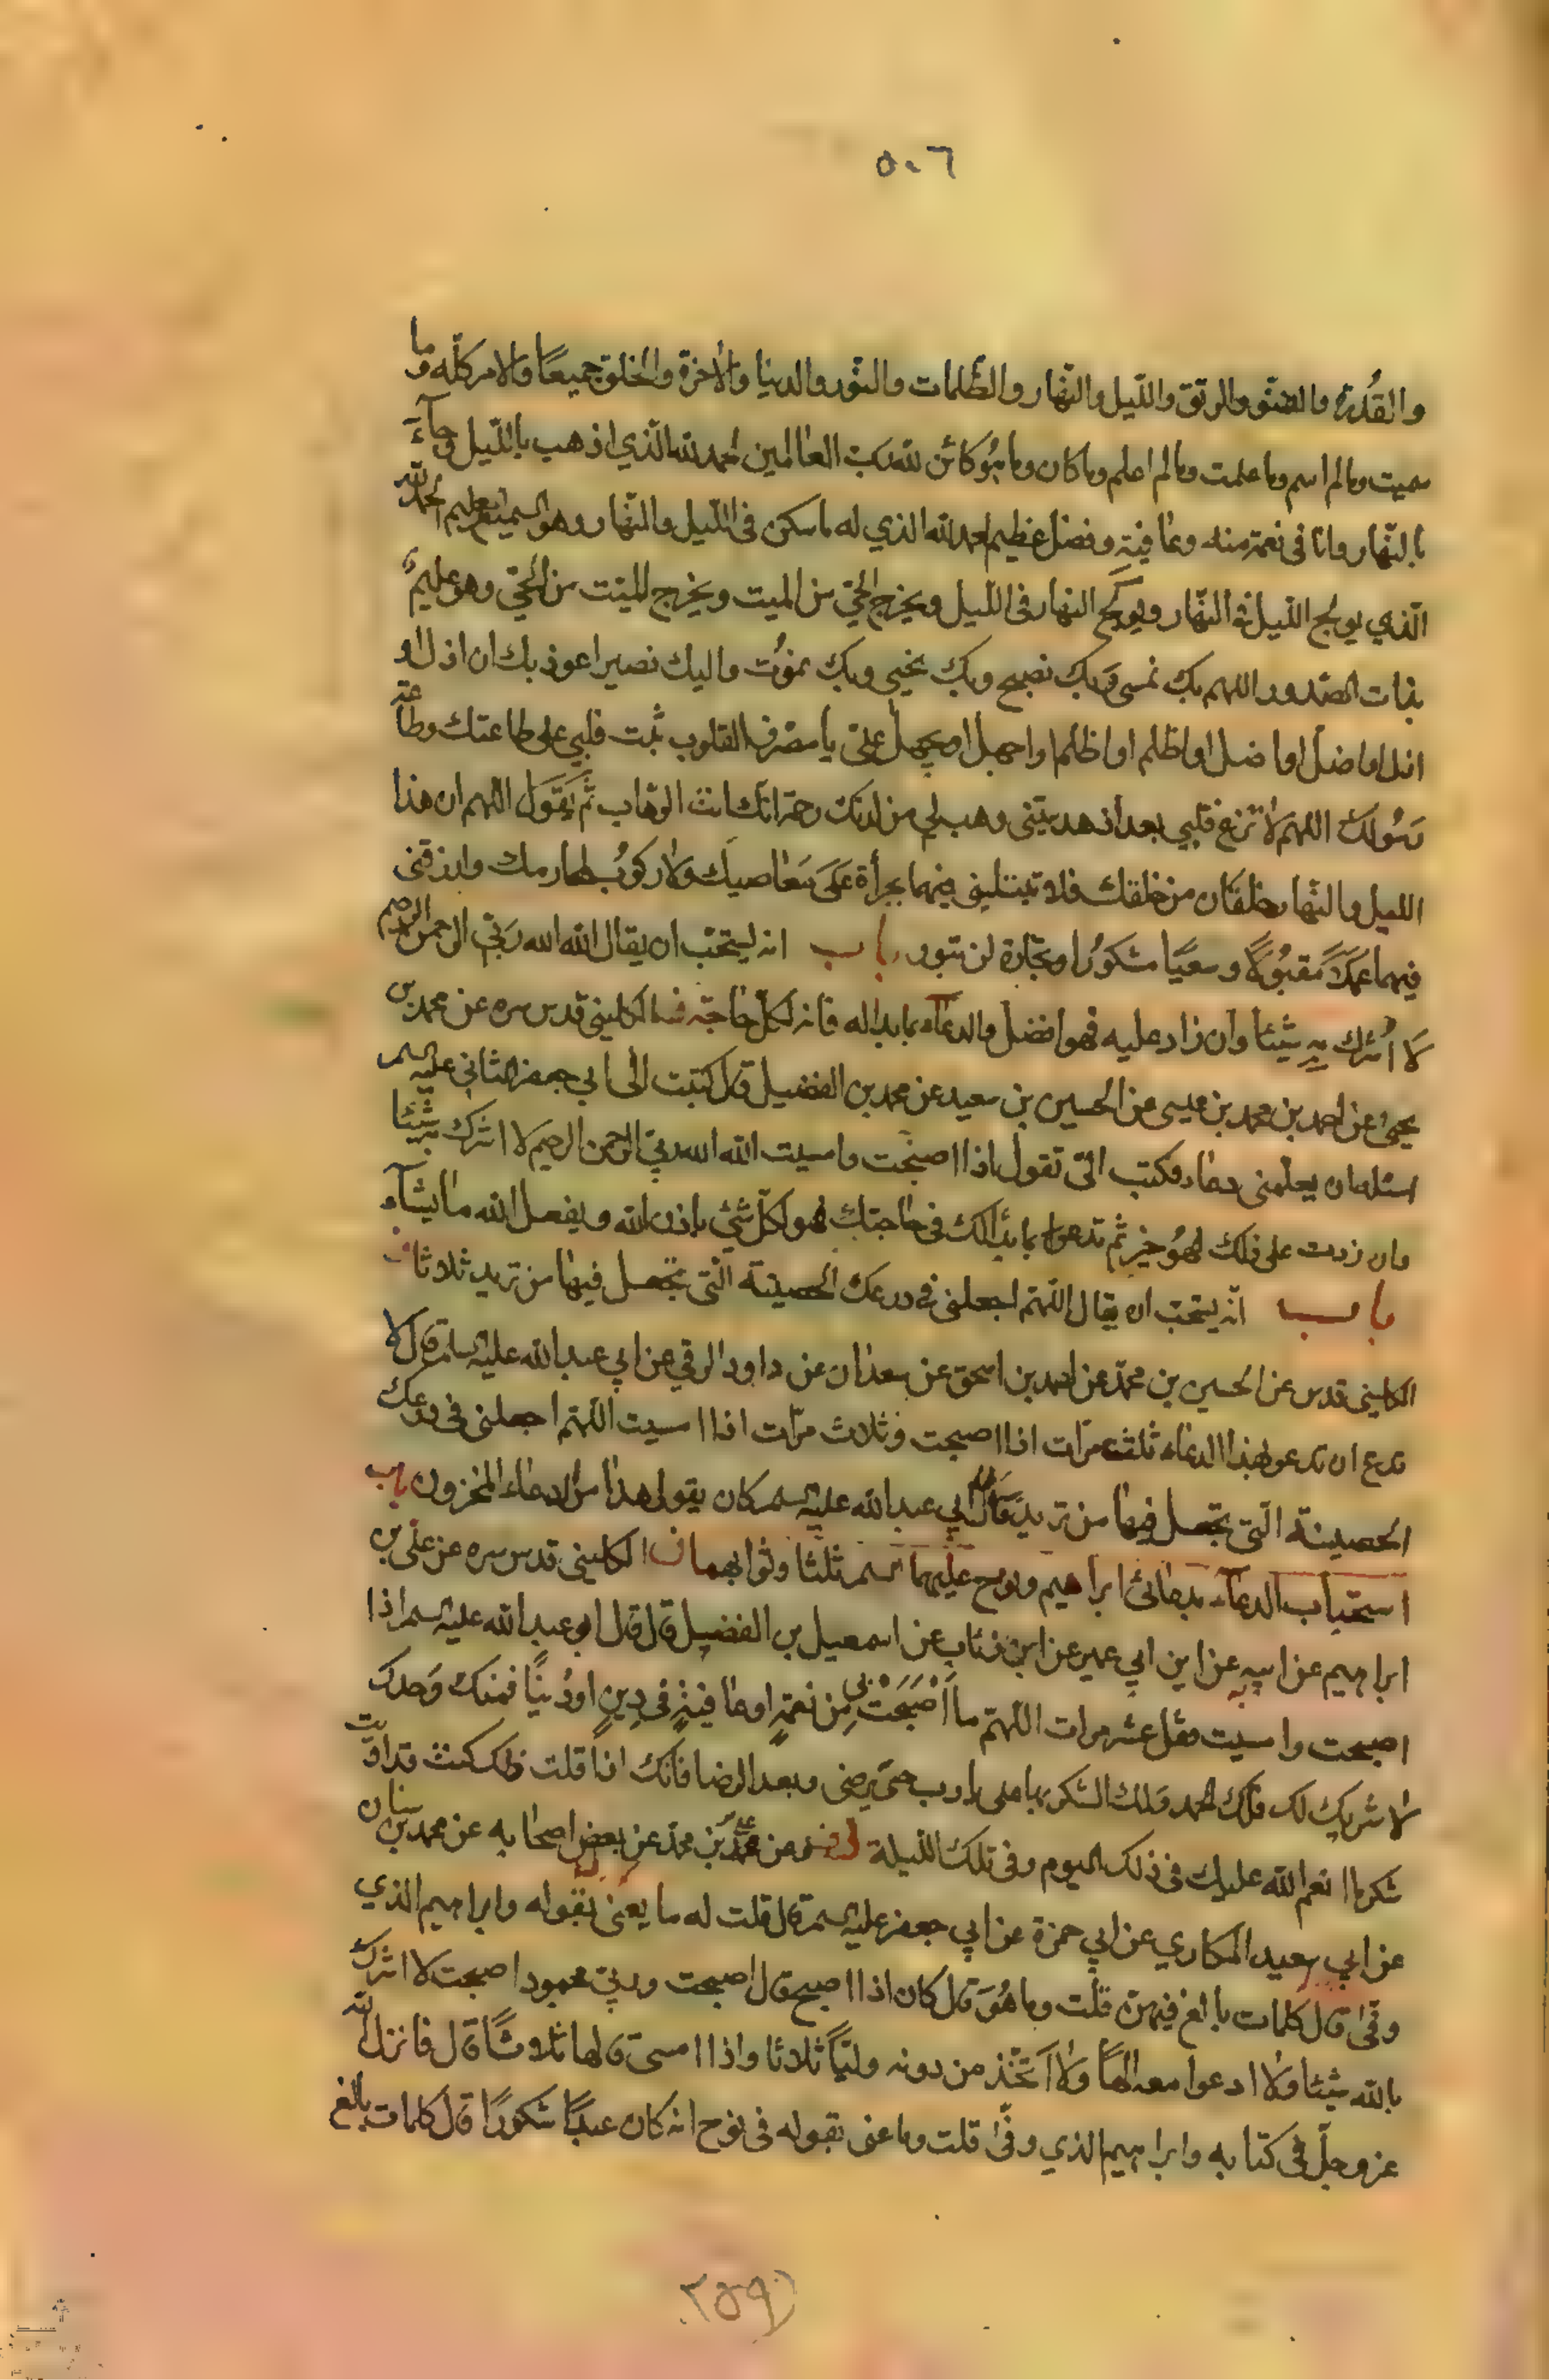 ٥٠٦
والقُدرة والفتق والرتق واللّيل والنّهار والظّلمات والنّور والدنيا والآخرة والخلق جميعًا والامر كلّه وما
سميت وما لم اسم وما علمت وما لم اعلم وما كان وما هُو كائن لله ربّ العالمين الحمد لله الّذي اذهب باللّيل وجآء
بالنّهار وانا فى نعمة منه وعافيةٍ وفضل عظيم الحمد لله الذي له ما سكن فى اللّيل والنّهار وهو السميع العليم الحمد لله
الّذي يولج اللّيل فى النّهار ويولج النهار فى اللّيل ويخرج الحيّ من الميت ويخرج الميّت من الحيّ وهو عليمٌ
بذات الصّدور اللهم بك نمسى وبك نصبح وبك نحيى وبك نموُت واليك نصير اعوذ بك ان اذل او
اذل او اضلّ او اضل او اظلم او اظلم او اجهل او يجهل علىّ يا مصّرف القلوب ثبّت قلبي على طاعتك وطاعة
رسُولك اللهمّ لا تزغ قلبي بعد اذ هديتنى وهب لي من لدنك رحمة انّك انت الوهّاب ثمّ يَقول اللهم ان هذا
الليل والنّهار خلقان من خلقك فلا تبتلينى فيهما بجرأة عَلى مَعاصيك ولا ركوُب لمحارمك وارزقنى
فيهما عملاً مقبُولاً وسعيًا مشكورًا وتجارة لن تبور باب انه يستحّب ان يقال الله الله ربّي الرحمن الرحيم
لا أُشرك بِهِ شيئا وان زاد عليه فهو افضل والدعآء بما بدا له فانه لكلّ حاجة الكلينى قدس سره عن محمد بن
يحيى عن احمد بن محمد بن عيسى عن الحسين بن سعيد عن محمد بن الفضيل قال كتبت الى ابي جعفر الثانى عليه السلم
اسئله ان يعلّمنى دعاء فكتب الىّ تقول اذا اصبحت وامسيت الله الله ربّي الرحمن الرحيم لا اشرك به شيئا
وان زدت على ذلك فهُو خير ثم تدعوا بما بدا لك فى حاجتك فهو لكلّ شئ باذن الله ويفعل الله ما يشآء
باب انّه يستحّب ان يقال اللّهمّ اجعلنى فى درعك الحصينة الّتى تجعل فيها من تريد ثلاثا ف
الكلينى قدس عن الحسين بن محمّد عن احمد بن اسحق عن سعدان عن داود الرقي عن ابي عبد الله عليه السلم قال لا
تدع ان تدعو بهذا الدعاء ثلث مرّات اذا اصبحت وثلاث مرّات اذا امسيت اللّهمّ اجعلنى فى درعك
الحصينة الّتى تجعل فيها من تريد فان ابي عبد الله عليه السلم كان يقول هذا من الدعاء المخزون باب
استحباب الدعآء بدعائى ابراهيم ونوح عليهما السلم ثلثا وثوابهما ف الكلينى قدس سره عن على بن
ابراهيم عن ابيه عن ابن ابي عمير عن ابن رئاب عن اسمعيل بن الفضيل قال قال ابو عبد الله عليه السلم اذا
اصبحت وامسيت فقل عشر مرات اللّهمّ ما أَصْبَحَتْ بي مِن نعمةٍ او عافيةٍ فى دِينٍ او دُنيًا فمنك وَحدك
لا شريك لك فلك الحمد ولك الشكر بها على يا رب حتى ترضى وبعد الرضا فانّك اذا قلت ذلك كنت قد ادّيت
شكر ما انعم الله عليك فى ذلك اليوم وفى تلك اللّيلة عن محمّد بن محمّد عن بعض اصحابه عن محمد بن سنان
عن ابي سعيد المكاري عن ابي حمزة عن ابي جعفر عليه السلم قال قلت له ما يعنى بقوله وابراهيم الذي
وفّى قال كلمات بالغ فيهنّ قلت وما هُوَ قال كان اذا اصبح قال اصبحت وربّي محمود اصبحت لا اشرك
بالله شيئا ولا ادعوا معه الهًا ولا اَتّخذ من دونه وليًّا ثلاثا واذا امسى قالها ثلاثًا قال فانزل الله
عز وجلّ فى كتابه وابراهيم الذي وفّى قلت وما عنى بقوله فى نوح انه كان عبدًا شكورًا قال كلمات بالغ
(٢٥٩